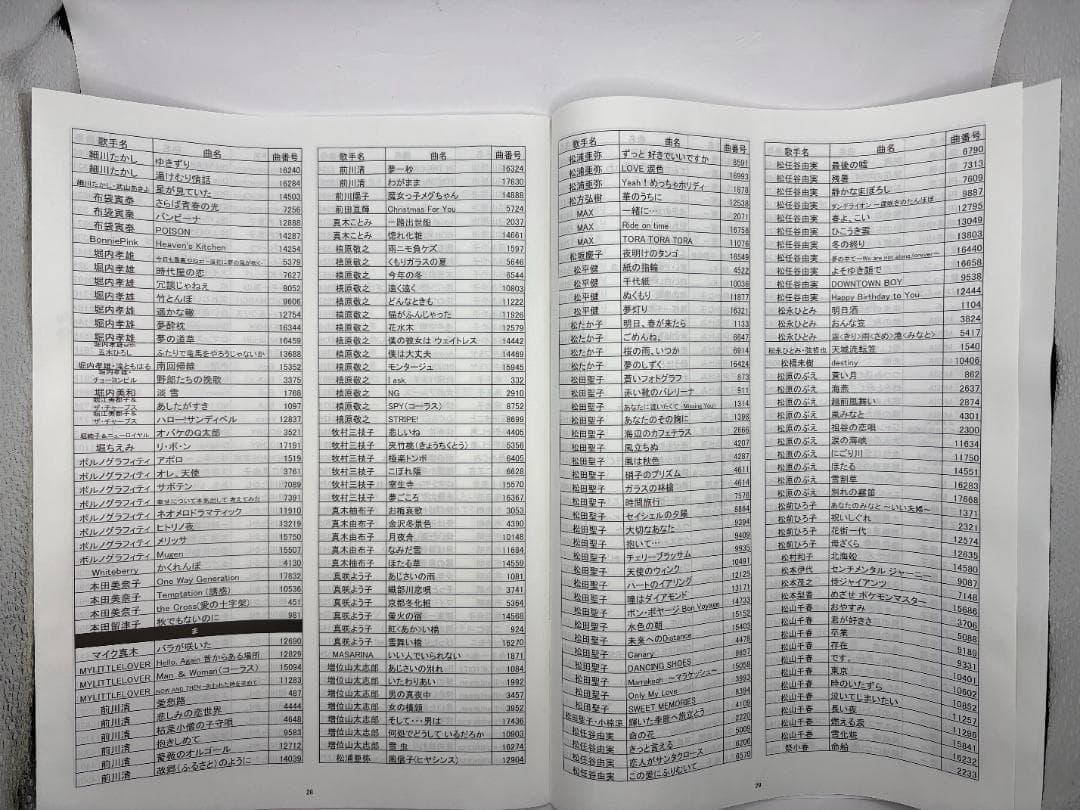 歌手名 曲名 曲番号
細川たかし ゆきずり 16240
細川たかし 湯けむり情話 16284
細川たかし・武山あきよ 星が見ていた 14503
布袋寅泰 さらば青春の光 7256
布袋寅泰 バンビーナ 12888
布袋寅泰 POISON 14287
BonniePink Heaven's Kitchen 14254
堀内孝雄 5379
堀内孝雄 時代屋の恋 7627
堀内孝雄 冗談じゃねえ 8052
堀内孝雄 竹とんぼ 9606
堀内孝雄 遥かな轍 12754
堀内孝雄 夢酔枕 16344
堀内孝雄 夢の道草 14459
堀内孝雄with五木ひろし ふたりで竜馬をやろうじゃないか 13688
堀内孝雄・滝ともはる 南回帰線 15352
堀内孝雄・チョーヨンピル 野郎たちの挽歌 3375
堀内美和 淡雪 1768
堀江美都子&ザ・チャープス あしたがすき 1097
堀江美都子&ザ・チャープス ハロー!サンディベル 12837
堀絢子&ニューロイヤル オバケのQ太郎 3521
堀ちえみ リ・ボ・ン 17191
ポルノグラフィティ アポロ 1519
ポルノグラフィティ オレ、天使 3761
ポルノグラフィティ サボテン 7089
ポルノグラフィティ 幸せについて本気出して考えてみた 7391
ポルノグラフィティ ネオメロドラマティック 11910
ポルノグラフィティ ヒトリノ夜 13219
ポルノグラフィティ メリッサ 15750
ポルノグラフィティ Mugen 15507
Whiteberry かくれんぼ 4130
本田美奈子 One Way Generation 17832
本田美奈子 Temptation(誘惑) 10536
本田美奈子 the Cross(愛の十字架) 451
本田路津子 秋でもないのに 981
ま
マイク真木 バラが咲いた 12690
MYLITTLELOVER Hello, Again 昔からある場所 12829
MYLITTLELOVER Man & Woman(コーラス) 15094
MYLITTLELOVER NOW AND THEN~失われた時を求めて 11283
前川清 愛愁路 487
前川清 悲しみの恋世界 4444
前川清 枯葉小僧の子守唄 4648
前川清 抱きしめて 9583
前川清 薔薇のオルゴール 12712
前川清 故郷(ふるさと)のように 14039
歌手名 曲名 曲番号
前川清 夢一秒 16324
前川清 わがまま 17630
前川陽子 魔女っ子メグちゃん 14888
前田亘輝 Christmas For You 5724
真木ことみ 一路出世船 2037
真木ことみ 惚れ化粧 14661
槙原敬之 雨ニモ負ケズ 1597
槙原敬之 くもりガラスの夏 5646
槙原敬之 今年の冬 6544
槙原敬之 遠く遠く 10803
槙原敬之 どんなときも 11222
槙原敬之 猫がふんじゃった 11926
槙原敬之 花水木 12579
槙原敬之 僕の彼女は ウェイトレス 14442
槙原敬之 僕は大丈夫 14469
槙原敬之 モンタージュ 15945
槙原敬之 I ask. 332
槙原敬之 NG 2910
槙原敬之 SPY(コーラス) 8752
槙原敬之 STRIPE! 8699
牧村三枝子 悲しいね 4405
牧村三枝子 夾竹桃(きょうちくとう) 5356
牧村三枝子 極楽トンボ 6405
牧村三枝子 こぼれ陽 6628
牧村三枝子 室生寺 15570
牧村三枝子 夢ごころ 16367
真木柚布子 お梅哀歌 3053
真木由布子 金沢冬景色 4390
真木由布子 月夜舟 10148
真木由布子 なみだ雪 11684
真木柚布子 ほたる草 14559
真咲よう子 あじさいの雨 1081
真咲よう子 織部川恋唄 3741
真咲よう子 京都冬化粧 5364
真咲よう子 蛍火の宿 14568
真咲よう子 紅(あか)い橋 924
真咲よう子 雪舞い橋 16270
MASARINA いい人でいられない 1871
増位山太志郎 あじさいの別れ 1084
増位山太志郎 いたわりあい 1992
増位山太志郎 男の真夜中 3457
増位山太志郎 女の横顔 3952
増位山太志郎 そして・・・男は 17436
増位山太志郎 何処でどうしているだろか 10903
増位山太志郎 雪虫 16274
松浦亜弥 風信子(ヒヤシンス) 12904
28
歌手名 曲名 曲番号
松浦亜弥 ずっと 好きでいいですか 8591
松浦亜弥 LOVE 涙色 16993
松浦亜弥 Yeah!めっちゃホリディ 1678
松方弘樹 華のように 12538
MAX 一緒に… 2071
MAX Ride on time 16758
MAX TORA TORA TORA 11076
松坂慶子 夜明けのタンゴ 16549
松平健 紙の指輪 4522
松平健 千代紙 10036
松平健 ぬくもり 11877
松平健 夢灯り 16321
松たか子 明日、春が来たら 1133
松たか子 ごめんね。 6647
松たか子 桜の雨、いつか 6914
松たか子 夢のしずく 16424
松田聖子 蒼いフォトグラフ 873
松田聖子 赤い靴のバレリーナ 911
松田聖子 あなたに逢いたくて~Missing You~ 1314
松田聖子 あなたのその胸に 1398
松田聖子 海辺のカフェテラス 2666
松田聖子 風立ちぬ 4207
松田聖子 風は秋色 4287
松田聖子 硝子のプリズム 4611
松田聖子 ガラスの林檎 4614
松田聖子 時間旅行 7578
松田聖子 セイシェルの夕陽 8894
松田聖子 大切なあなた 9394
松田聖子 抱いて… 9409
松田聖子 チェリーブラッサム 9935
松田聖子 天使のウィンク 10491
松田聖子 ハートのイアリング 12125
松田聖子 瞳はダイアモンド 13171
松田聖子 ボン・ボヤージ Bon Voyage 14733
松田聖子 水色の朝 15152
松田聖子 未来へのDistance 15403
松田聖子 Canary 4478
松田聖子 DANCING SHOES 9857
松田聖子 Marrakech ~マラケッシュ~ 15058
松田聖子 Only My Love 13993
松田聖子 SWEET MEMORIES 8394
松田聖子・小柊涼 輝いた季節へ旅立とう 4109
松任谷由実 命の花 2220
松任谷由実 きっと言える 5009
松任谷由実 恋人がサンタクロース 6206
松任谷由実 この愛にふりむいて 8570
歌手名 曲名 曲番号
松任谷由実 最後の嘘 6790
松任谷由実 残暑 7313
松任谷由実 静かなまぼろし 7609
松任谷由実 ダンデライオン~遅咲きのたんぽぽ 9887
松任谷由実 春よ、こい 12795
松任谷由実 ひこうき雲 13049
松任谷由実 冬の終り 13803
松任谷由実 夢の中で~We are not alone,forever~ 16440
松任谷由実 よそゆき顔で 16658
松任谷由実 DOWNTOWN BOY 9538
松任谷由実 Happy Birthday to You 12444
松永ひとみ 明日酒 1104
松永ひとみ おんな笠 3824
松永ひとみ 霧<きり>雨<さめ>港<みなと> 5417
松永ひとみ・弦哲也 天城流転笠 1540
松橋未樹 destiny 10406
松原のぶえ 蒼い月 862
松原のぶえ 海燕 2637
松原のぶえ 越前風舞い 2874
松原のぶえ 風みなと 4301
松原のぶえ 祖谷の恋唄 2300
松原のぶえ 涙の海峡 11634
松原のぶえ にごり川 11750
松原のぶえ ほたる 14551
松原のぶえ 雪割草 16283
松原のぶえ 別れの霧笛 17668
松前ひろ子 あなたのみなと~いい夫婦~ 1371
松前ひろ子 祝いしぐれ 2321
松前ひろ子 花街一代 12574
松前ひろ子 母ざくら 12635
松村和子 北海舩 14580
松本伊代 センチメンタル ジャーニー 9087
松本茂之 侍ジャイアンツ 7148
松本梨香 めざせ ポケモンマスター 15686
松山千春 おやすみ 3706
松山千春 君が好きさ 5088
松山千春 卒業 9189
松山千春 存在 9331
松山千春 です。 10401
松山千春 東京 10602
松山千春 時のいたずら 10852
松山千春 泣いてしまいたい 11257
松山千春 長い夜 11295
松山千春 燃える涙 15841
松山千春 雪化粧 16232
祭小春 命船 2233
29